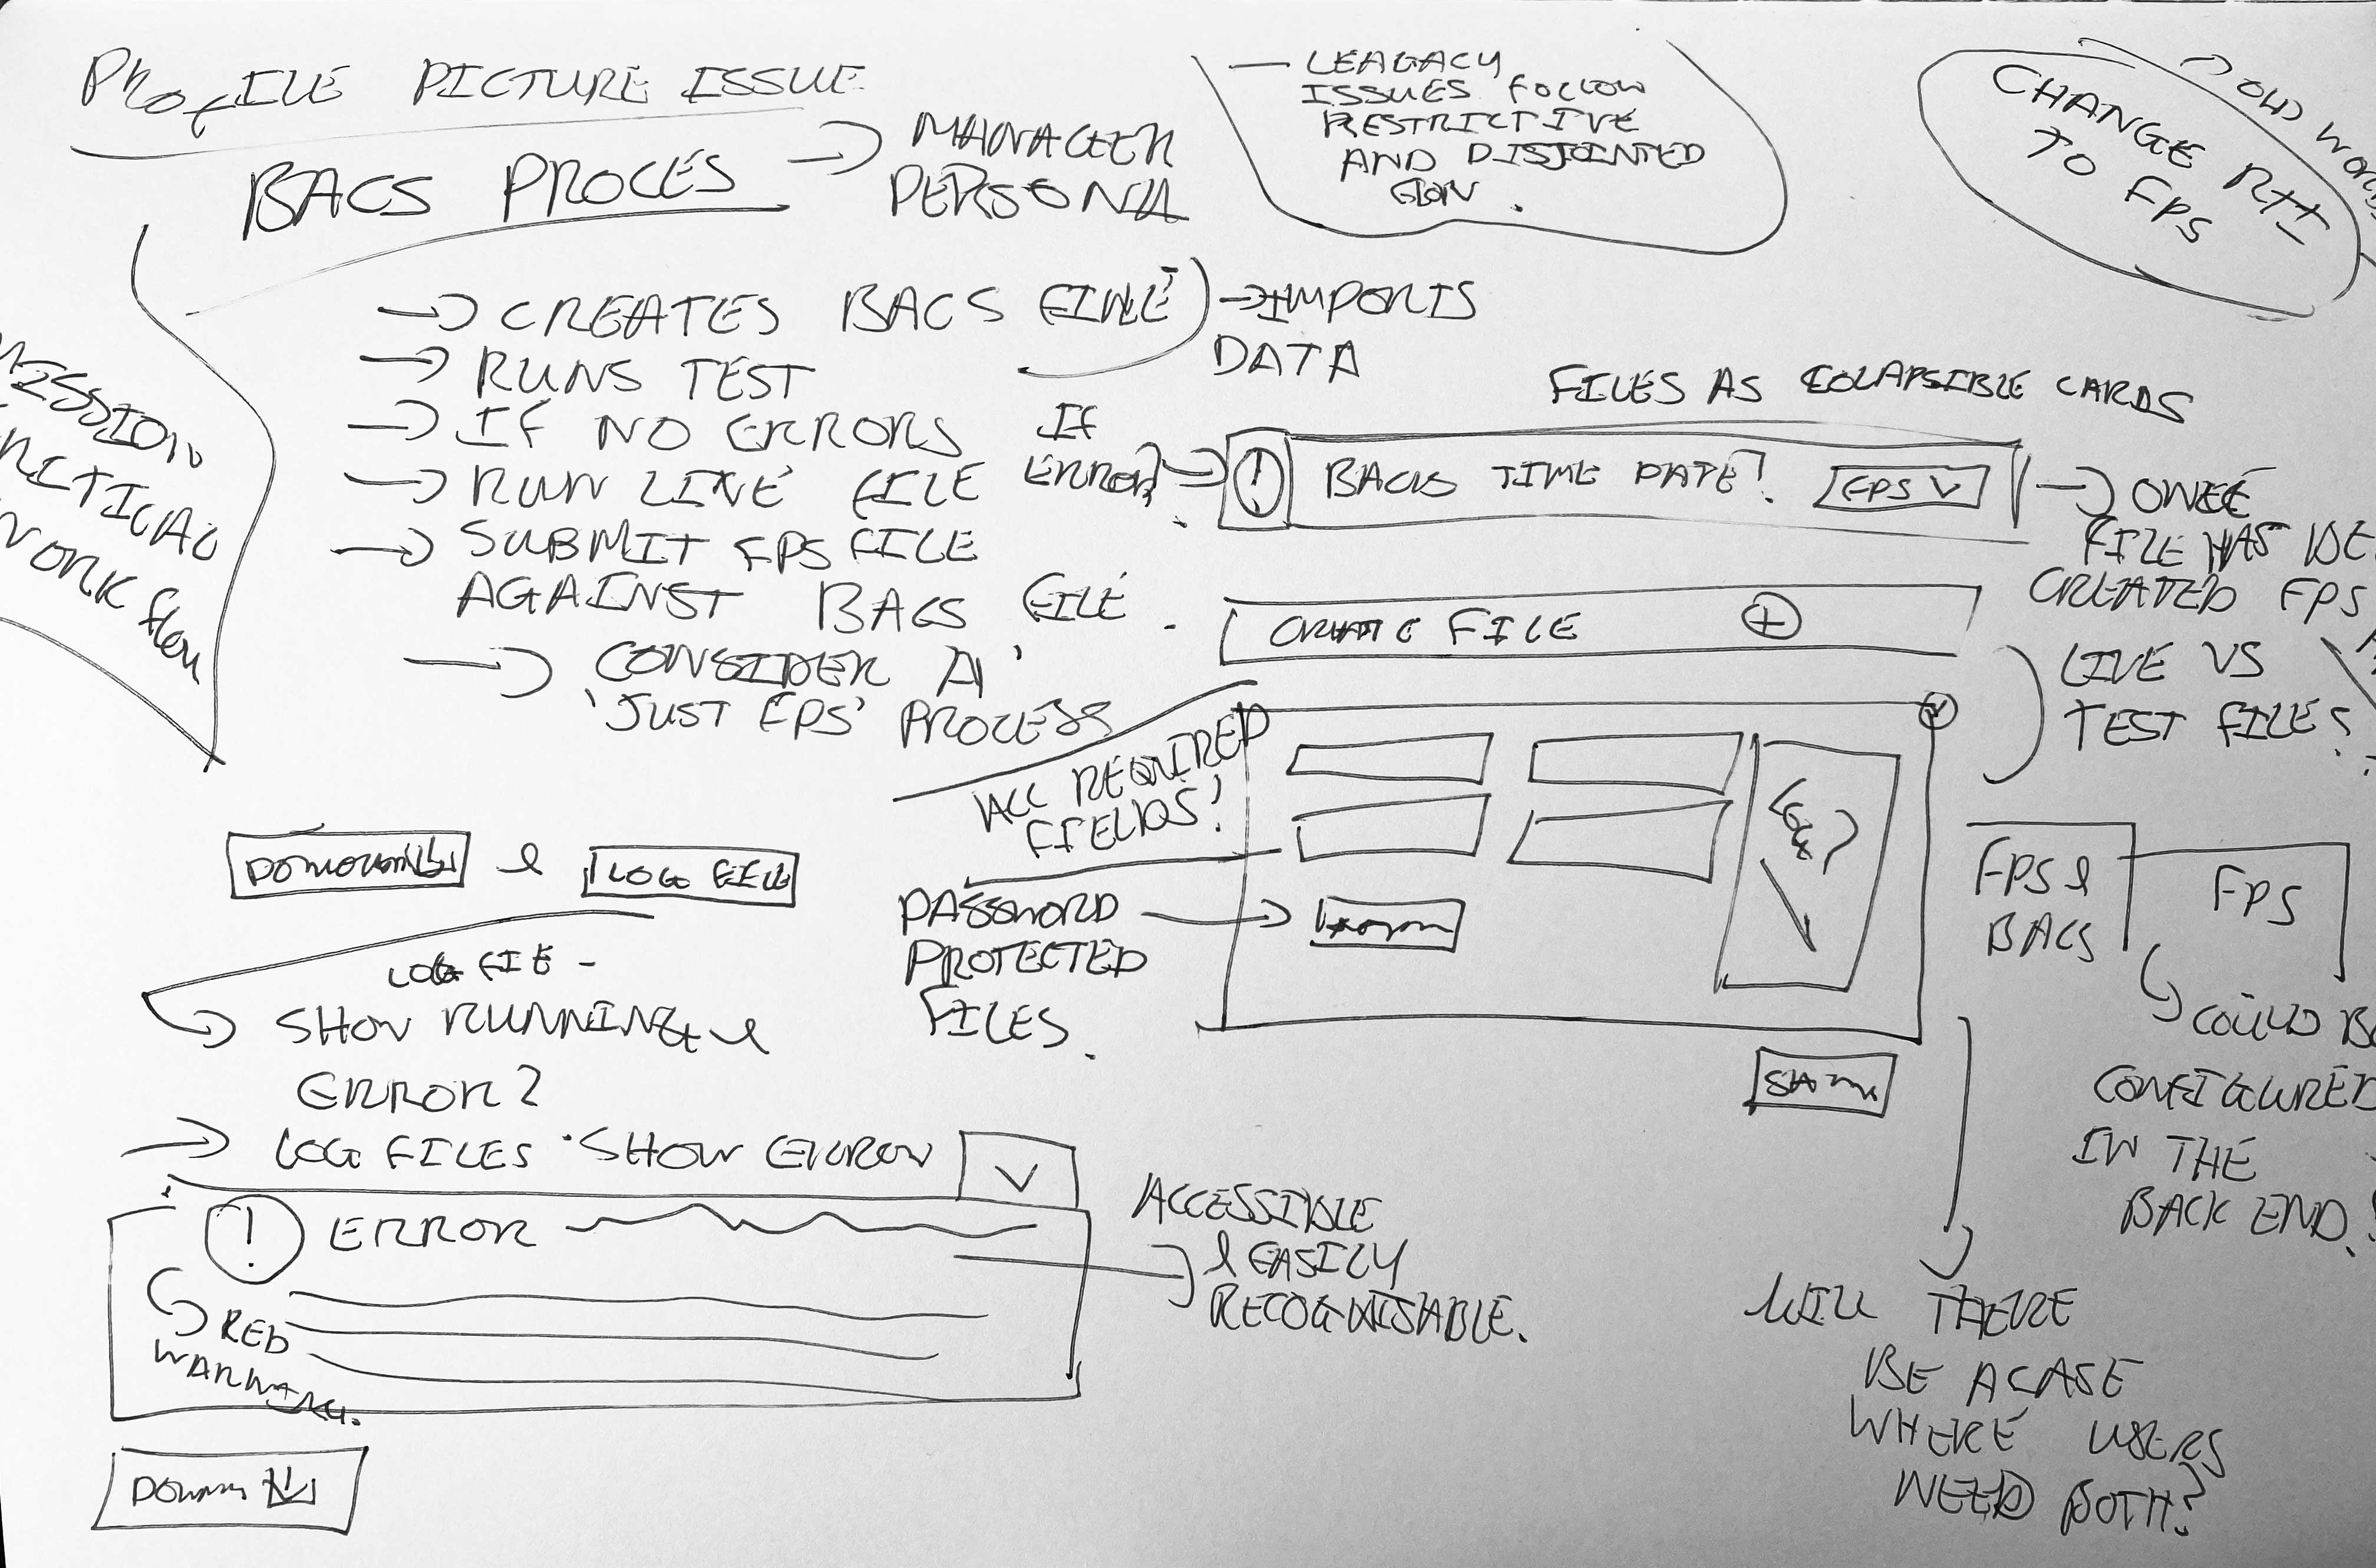 PROFILE PICTURE ISSUE
BACS PROCES
→ MANAGER
PERSONA
— LEAGACY
ISSUES FOLLOW
RESTRICTIVE
AND DISJOINTED
CHANGE RTI
TO FPS
→ OLD
MISSION
CRITICAL
WORK flow
→ CREATES BACS FILE
→ IMPORTS
DATA
→ RUNS TEST
→ IF NO ERRORS
→ RUN LIVE FILE
→ SUBMIT FPS FILE
AGAINST BACS FILE
→ CONSIDER A
'JUST FPS' PROCESS
IF
ERROR →
FILES AS COLAPSIBLE CARDS
! BACS TIME DATE! FPS ∨
→ ONCE
FILE HAS
CREATED FPS
CREATE FILE +
LIVE VS
TEST FILE?
ALL REQUIRED
FIELDS!
PASSWORD →
PROTECTED
FILES.
FPS &
BACS
FPS
COULD BE
CONFIGURED
IN THE
BACK END!
WILL THERE
BE A CASE
WHERE USERS
NEED BOTH?
& LOG FILE
LOG FIE -
SHOW RUNNING &
ERROR?
→ LOG FILES 'SHOW ERROR
! ERROR
RED
WARNING.
ACCESSIBLE
& EASILY
RECOGNISABLE.